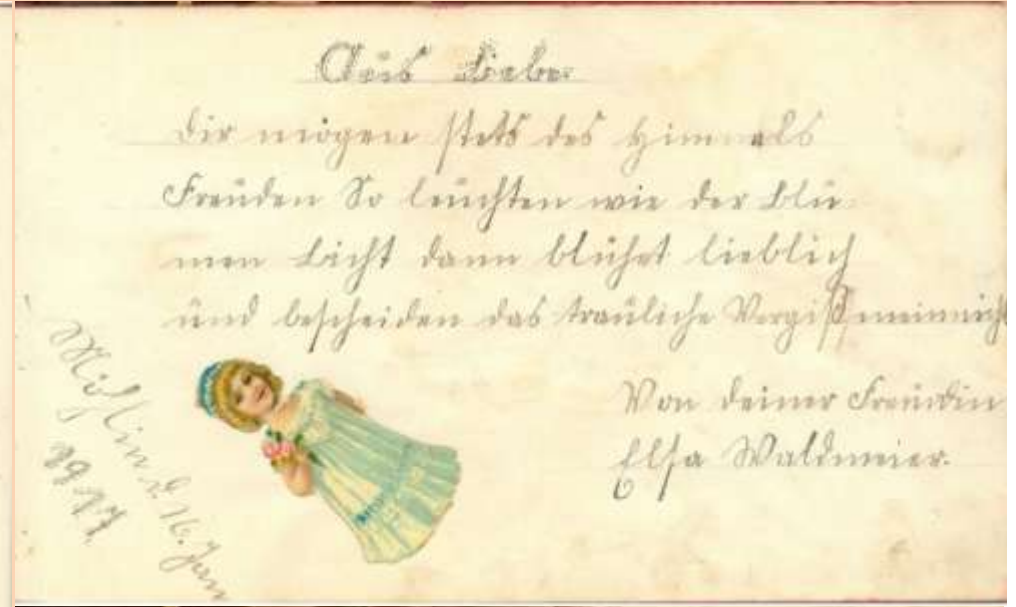 Aus Liebe.
Dir mögen stets des Himmels
Freuden So leuchten wie der Blu-
men Licht dann blühet lieblich
und bescheiden das trauliche Vergißmeinnicht
Von deiner Freundin
Elsa Waldmeier.
Möhlin d. 16. Jan
1917.